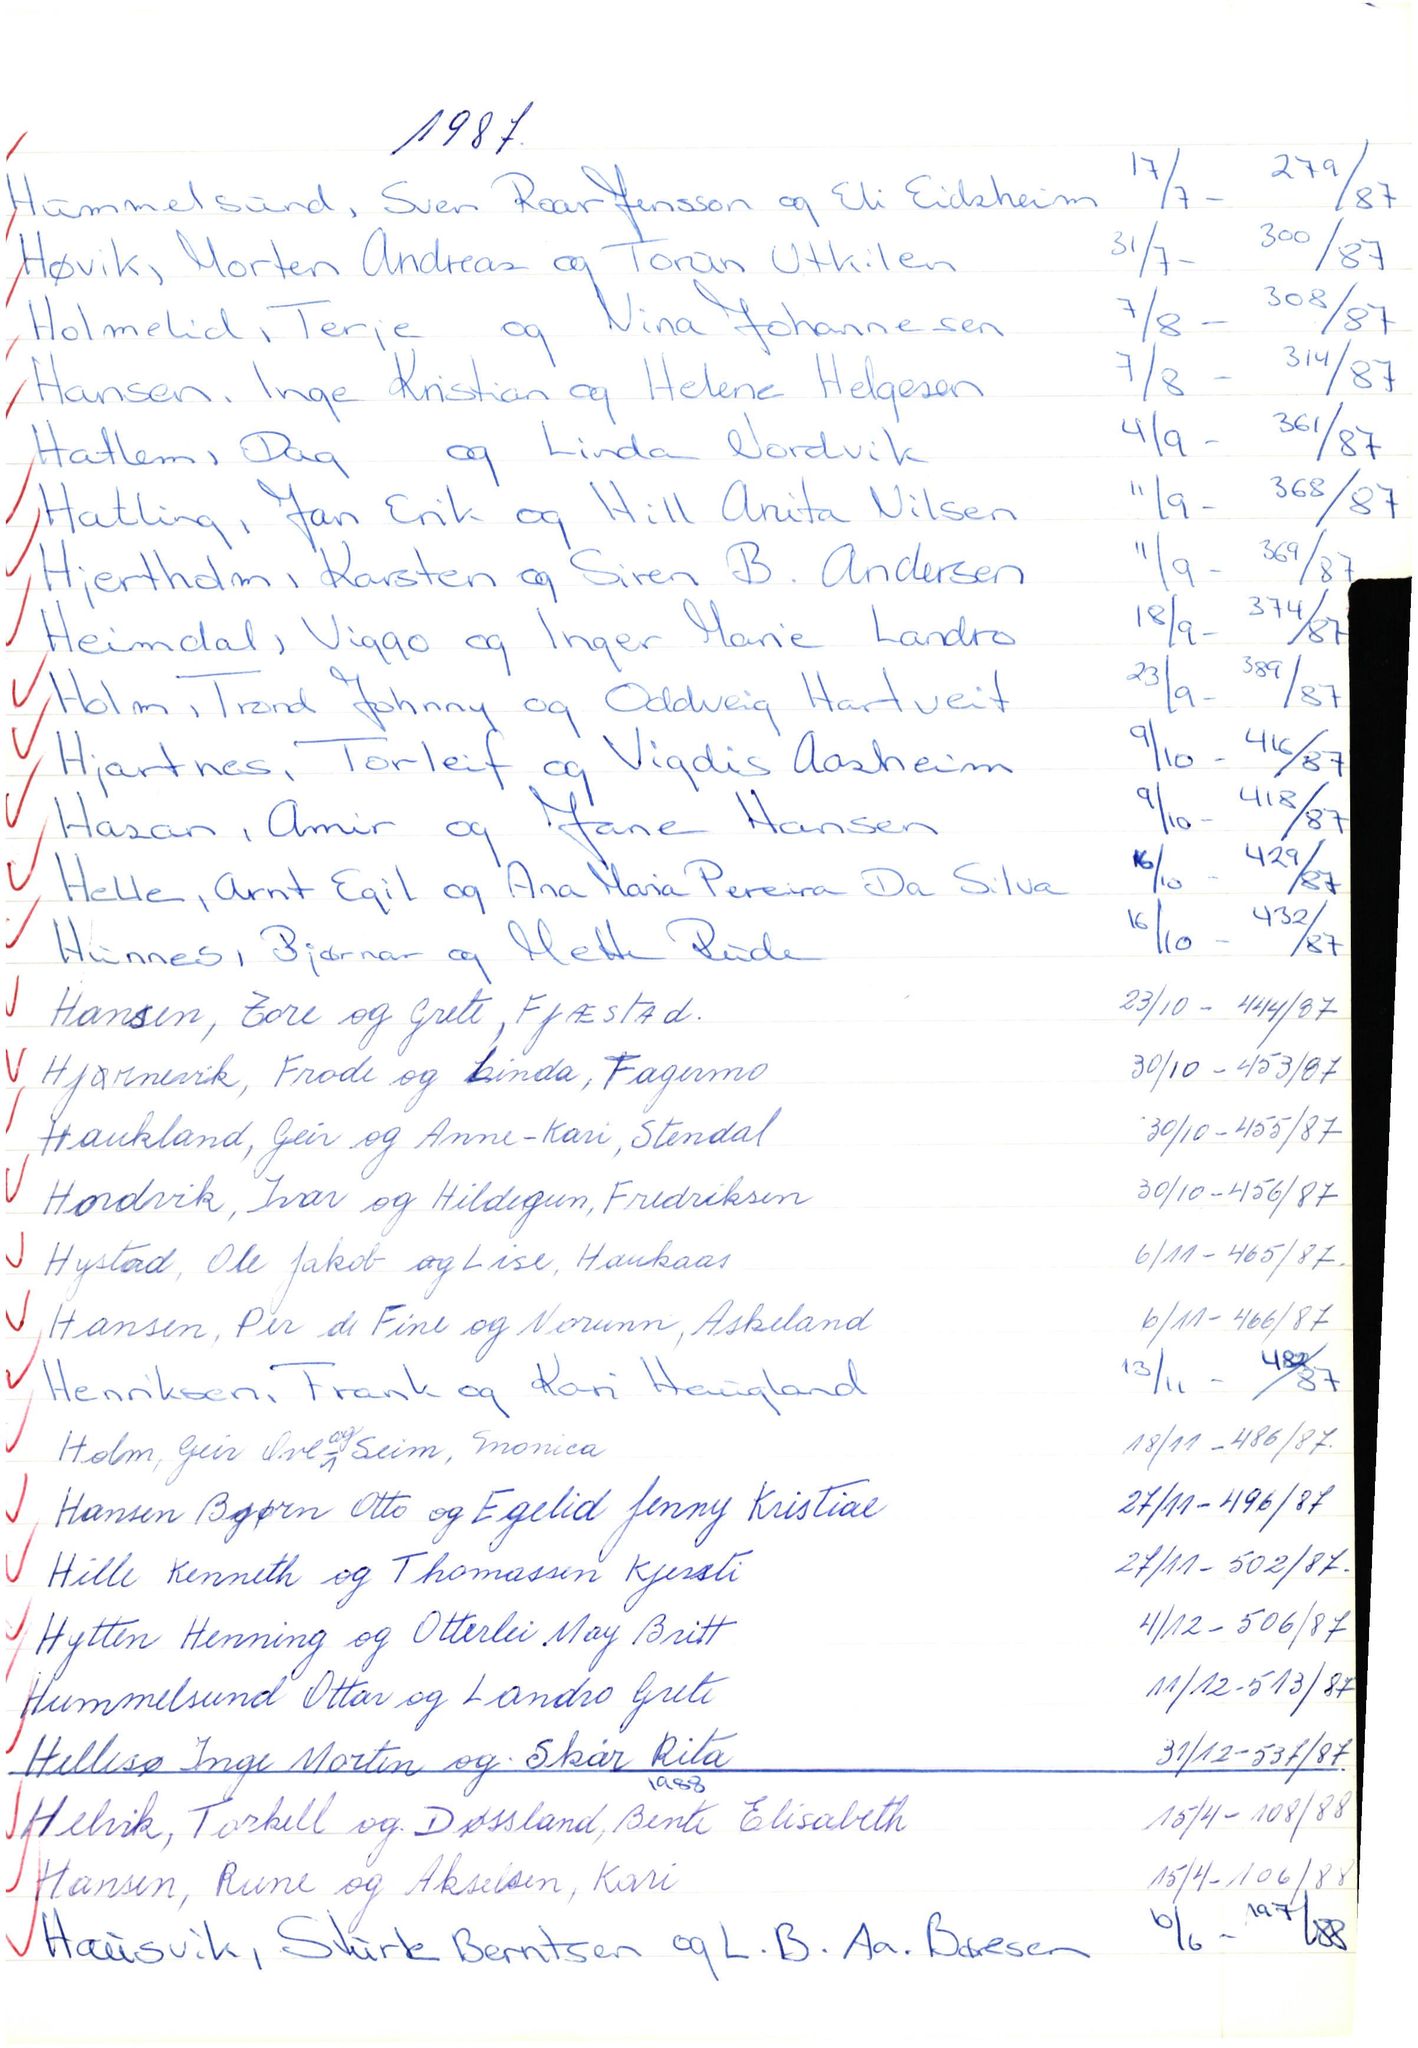 1987.
Hummelsund, Sven Roar Jensson og Eli Eidsheim 17/7 - 279/87
Høvik, Morten Andreas og Torun Utkilen 31/7 - 300/87
Holmelid, Terje og Nina Johannesen 7/8 - 308/87
Hansen. Inge Kristian og Helene Helgesen 7/8 - 314/87
Hatlem, Dag og Linda Nordvik 4/9 - 361/87
Hatling, Jan Erik og Hill Anita Nilsen 11/9 - 368/87
Hjertholm, Karsten og Siren B. Andersen 11/9 - 369/87
Heimdal, Viggo og Inger Marie Landro 18/9 - 374/87
Holm, Trond Johnny og Oddveig Hartveit 23/9 - 389/87
Hjartnes, Torleif og Vigdis Aasheim 9/10 - 416/87
Hasan, Amir og Jane Hansen 9/10 - 418/87
Helle, Arnt Egil og Ana Maria Pereira Da Silva 16/10 - 429/87
Hunnes, Bjørnar og Mette Rude 16/10 - 432/87
Hansen, Tore og Grete, Fjæstad. 23/10 - 444/87
Hjørnevik, Frode og Linda, Fagermo 30/10 - 453/87
Haukland, Geir og Anne-Kari, Stendal 30/10 - 455/87
Hordvik, Ivar og Hildegun, Fredriksen 30/10 - 456/87
Hystad, Ole Jakob og Lise, Haukaas 6/11 - 465/87.
Hansen, Per de Fine og Norunn, Askeland 6/11 - 466/87
Henriksen, Frank og Kari Haugland 13/11 - 482/87
Holm, Geir Ove og Seim, Monica 18/11 - 486/87.
Hansen Bjørn Otto og Egelid Jenny Kristine 27/11 - 496/87
Hille Kenneth og Thomassen Kjersti 27/11 - 502/87.
Hytten Henning og Otterlei May Britt 4/12 - 506/87
Hummelsund Ottar og Landro Grete 11/12 - 513/87
Hellesø Inge Morten og Skår Rita 31/12 - 537/87.
1988
Helvik, Torkell og Døssland, Bente Elisabeth 15/4 - 108/88
Hansen, Rune og Akselsen, Kari 15/4 - 106/88
Hausvik, Sturle Berntsen og L. B. Aa. Børesen 10/6 - 197/88